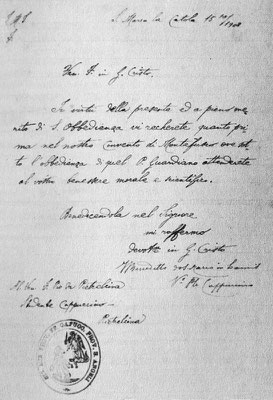 S. Marco la Catola 15 10/908
Ven. F. in G. Cristo.
In virtù della presente ed a pieno me-
rito di S. Obbedienza vi recherete quanto pri-
ma nel nostro convento di Montefusco ove sot-
to l'obbedienza di quel P. Guardiano attenderete
al vostro benessere morale e scientifico.
Benedicendola nel Signore
mi raffermo
devotto in G. Cristo
F. Benedetto da S. Marco in Lamis
Mo. Ple Cappuccino
Al Ven. F. Pio da Pietrelcina
Studente Cappuccino
Pietrelcina